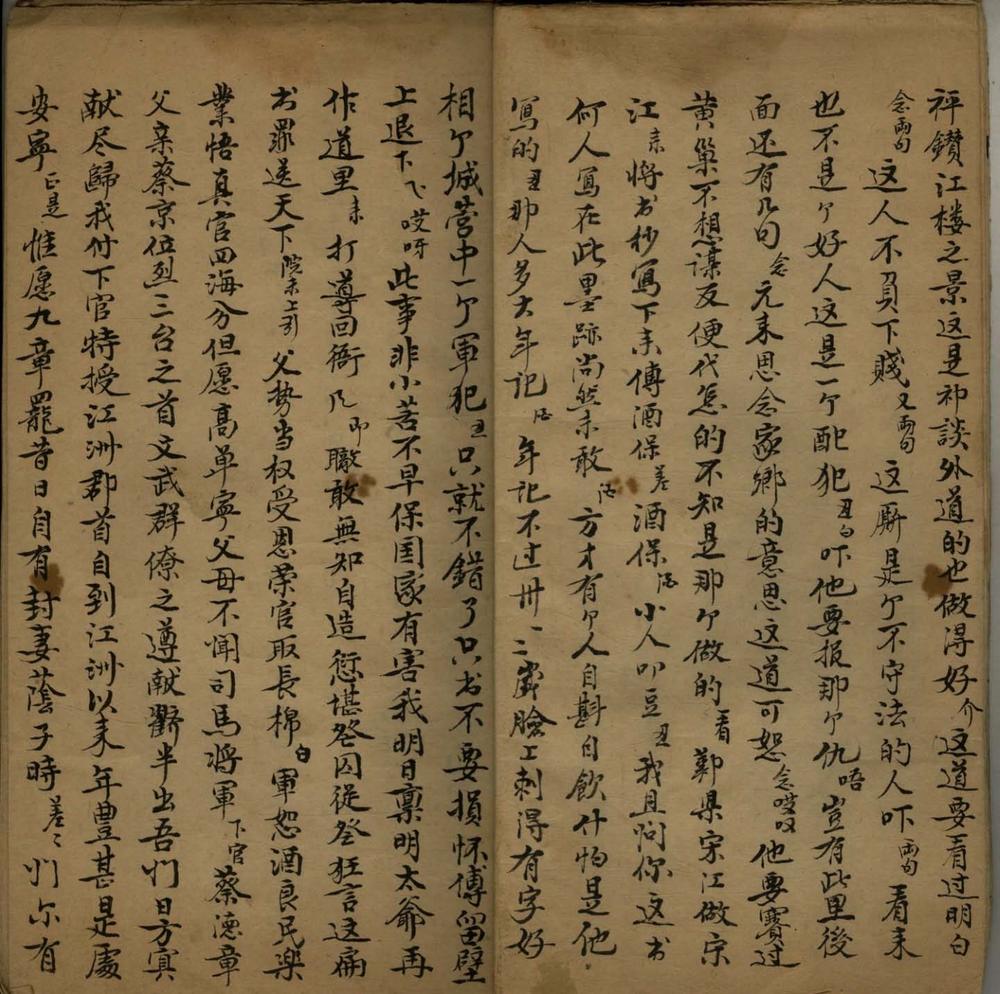 秤鑚江楼之景这是祁談外道的也做得好介这道要看过明白
念兩句这人不貟下賤又兩句这厮是亇不守法的人吓兩句看来
也不是亇好人这是一亇配犯丑白吓他要报那亇仇唔豈有此里後
面还有几句念元来思念家鄉的意思这道可恕念哎呀他要賽过
黄巢不想谋反便代怎的不知是那亇做的看鄆県宋江做宋
江来将书秒寫下来傅酒保差酒保酒小人叩豆丑我且问你这书
何人寫在此墨跡尚然未敢酒方才有亇人自斟自飲什怕是他
寫的丑那人多大年记酒年记不过卅二歲臉上刺得有字好
相亇城营中一亇軍犯丑只就不錯了只书不要損怀傅留壁
上退下飞哎呀此事非小若不早保国家有害我明日禀明太爺再
作道里来打導回衙凡叩職敢無知自造愆堪登囚從登狂言这扁
书罪送天下院来上引父势当权受恩荣官取長棉白軍恕酒良民楽
業悟真官四海分但愿高单寜父母不闻司馬将軍下官蔡德章
父亲蔡京位烈三台之首文武群僚之遵献雞半出吾们日方寅
献尽歸我付下官特授江洲郡首自到江洲以来年豊甚是處
安寜正是惟愿九章罷昔日自有封妻蔭子時差〻们尓有